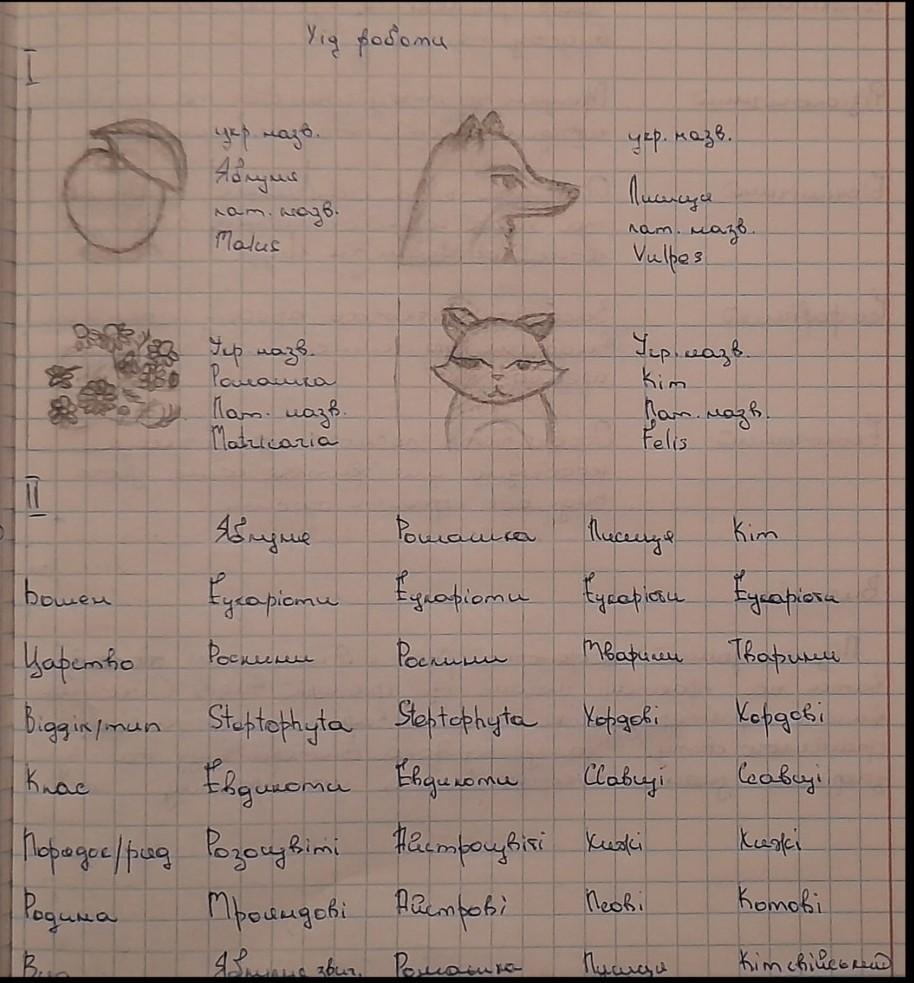 Хід роботи
I
укр. назв.
Яблуня
лат. назв.
Malus
укр. назв.
Лисиця
лат. назв.
Vulpes
Укр назв.
Ромашка
Лат. назв.
Matricaria
Укр. назв.
Кіт
Лат. назв.
Felis
II
Яблуня Ромашка Лисиця Кіт
Домен Еукаріоти Еукаріоти Еукаріоти Еукаріоти
Царство Рослини Рослини Тварини Тварини
Відділ/тип Steptophyta Steptophyta Хордові Хордові
Клас Евдикоти Евдикоти Ссавці Ссавці
Порядок/ряд Розоцвіті Айстроцвіті Хижі Хижі
Родина Трояндові Айстрові Псові Котові
Вид Яблуня звич. Ромашка Лисиця Кіт свійський